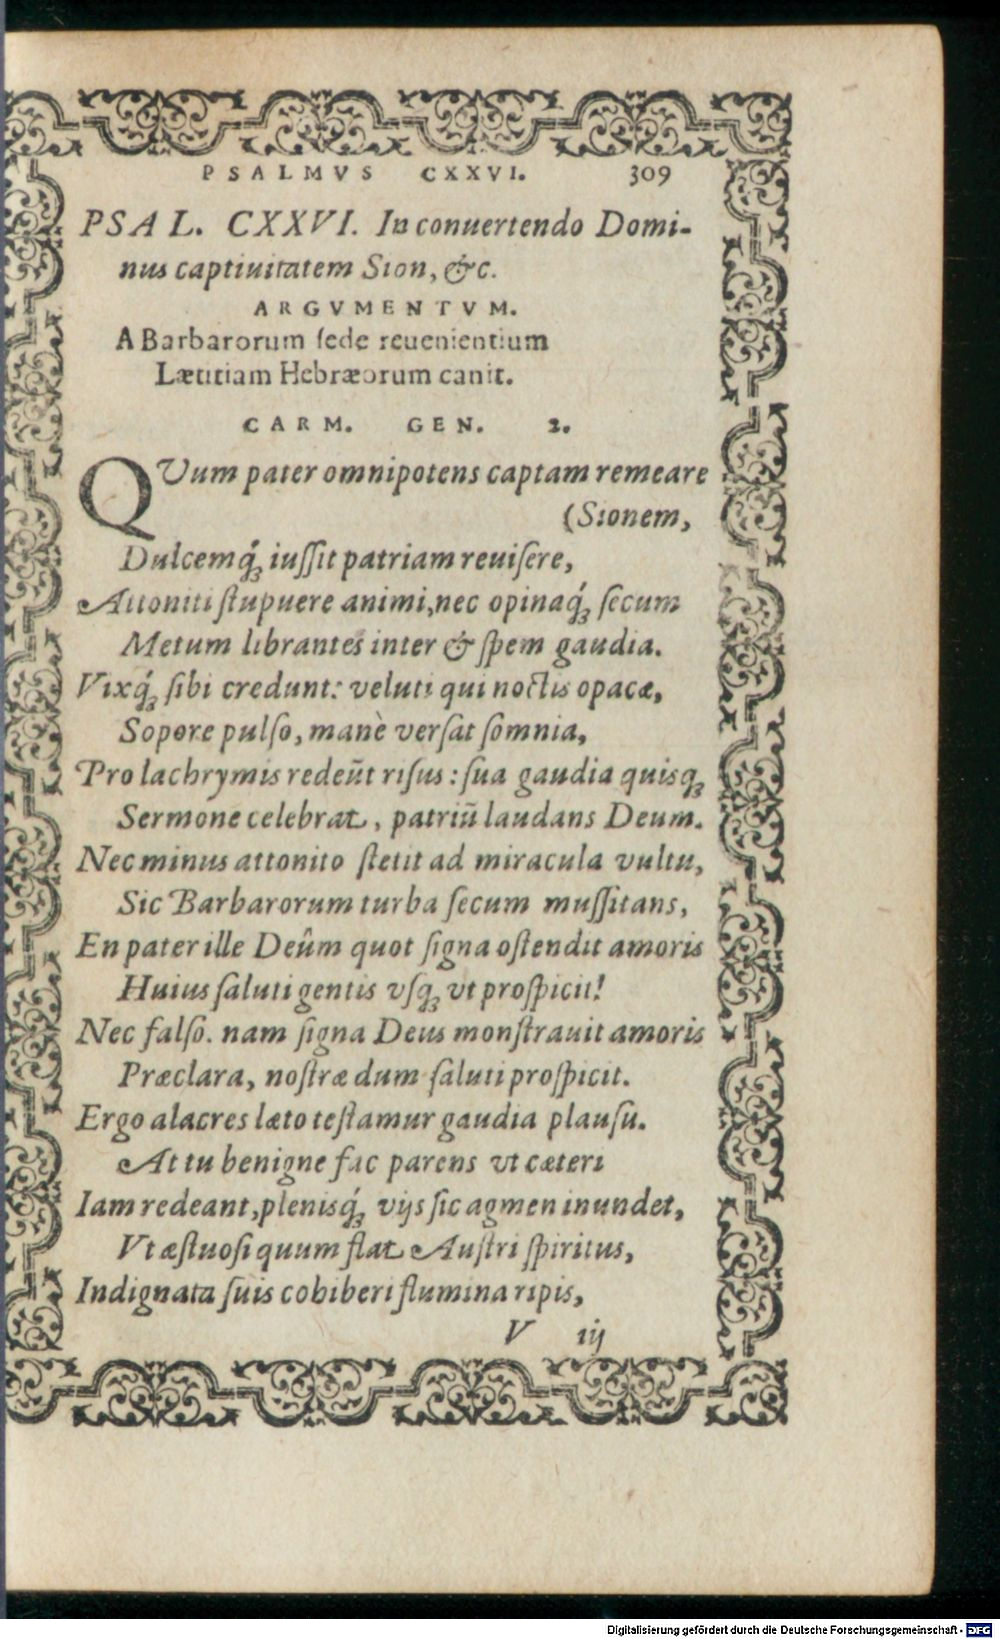 PSALMVS CXXVI. 309
PSAL. CXXVI. In conuertendo Domi-
nus captiuitatem Sion, &c.
ARGVMENTVM.
A Barbarorum ſede reuenientium
Lætitiam Hebræorum canit.
CARM. GEN. 2.
QVum pater omnipotens captam remeare
(Sionem,
Dulcemq́ꝫ iuſſit patriam reuiſere,
Attoniti ſtupuere animi, nec opinaq́ꝫ ſecum
Metum librantes inter & ſpem gaudia.
Vixq́ꝫ ſibi credunt: veluti qui noctis opacæ,
Sopore pulſo, manè verſat ſomnia,
Pro lachrymis redeũt riſus: ſua gaudia quisqꝫ
Sermone celebrat, patriũ laudans Deum.
Nec minus attonito ſtetit ad miracula vultu,
Sic Barbarorum turba ſecum muſſitans,
En pater ille Deûm quot ſigna oſtendit amoris
Huius ſaluti gentis vſqꝫ vt proſpicit!
Nec falſò. nam ſigna Deus monſtrauit amoris
Præclara, noſtræ dum ſaluti proſpicit.
Ergo alacres læto teſtamur gaudia plauſu.
At tu benigne fac parens vt cæteri
Iam redeant, plenisq́ꝫ vijs ſic agmen inundet,
Vt æſtuoſi quum flat Auſtri ſpiritus,
Indignata ſuis cohiberi flumina ripis,
V iij
Digitalisierung gefördert durch die Deutsche Forschungsgemeinschaft - DFG